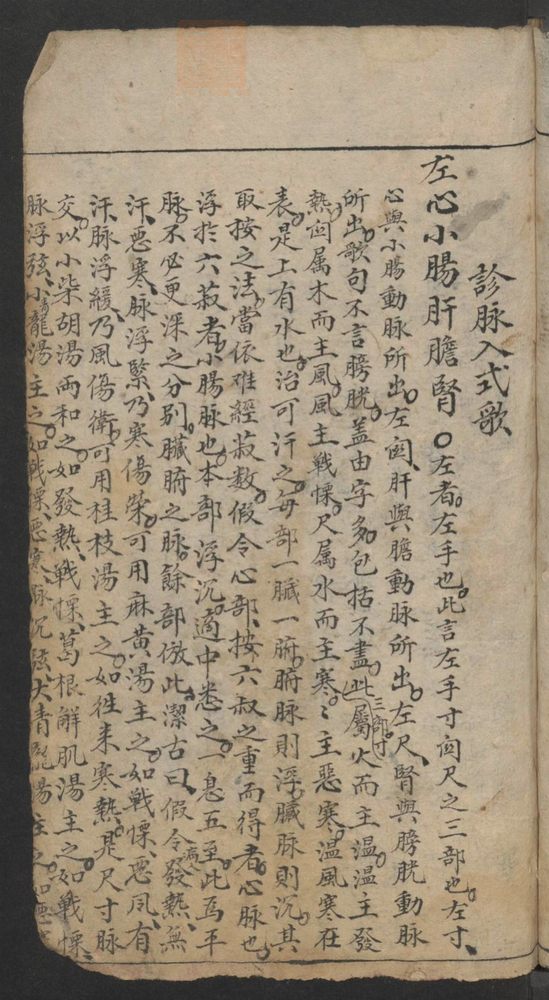 診脉入式歌
左心小腸肝膽腎〇左者左手也此言左手寸関尺之三部也左寸
心與小腸動脉所出左関肝與膽動脉所出左尺腎與膀胱動脉
所出歌句不言膀胱盖由字多包括不盡此三部寸屬火而主温温主發
熱関属木而主風風主戦慄尺属水而主寒〻主惡寒温風寒在
表是上有水也治可汗之每部一臓一腑腑脉則浮臓脉則沉其
取按之法當依难經菽数假令心部按六菽之重而得者心脉也
浮於六菽者小腸脉也本部浮沉適中悉之一息五至此為平
脉不必更深之分别臓腑之脉餘部倣此潔古曰假令病發熱無
汗惡寒脉浮緊乃寒傷荣可用麻黄湯主之如戦慄惡風有
汗脉浮緩乃風傷衛可用桂枝湯主之如徃来寒熱是尺寸脉
交以小柴胡湯両和之如發熱戦慄葛根觧肌湯主之如戦慄
脉浮弦小龍湯主之如戦慄惡寒脉沉弦大青龍湯主之